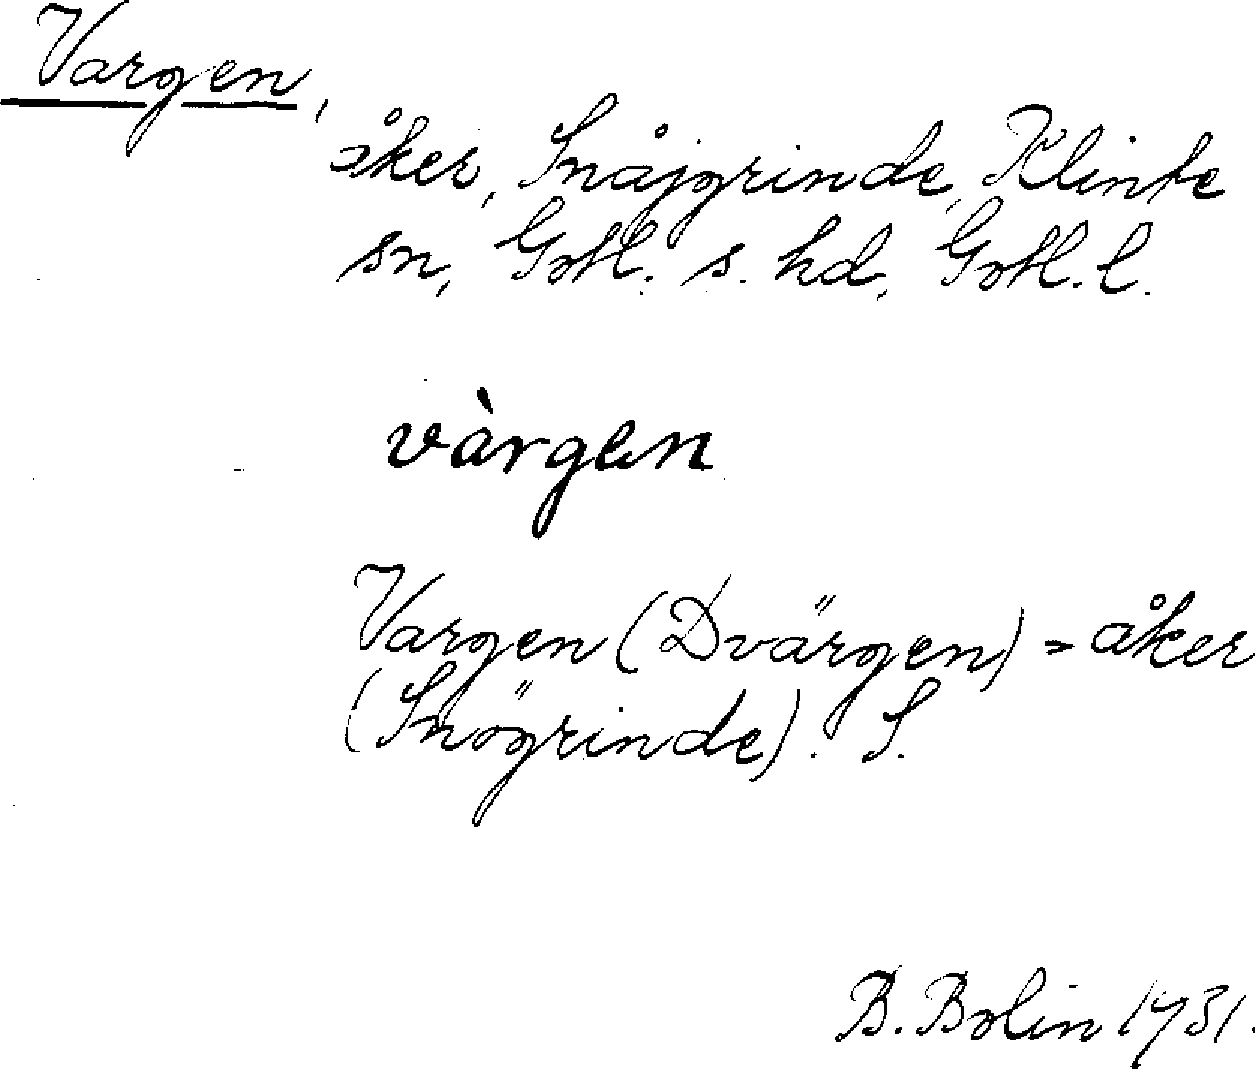 Vargen,
åker, Snåjgrinde, Klinte
sn, Gotl. s. hd, Gotl. l.
vàrgen
Vargen (Dvärgen) = åker
(Snögrinde). S.
B. Bolin 1931.